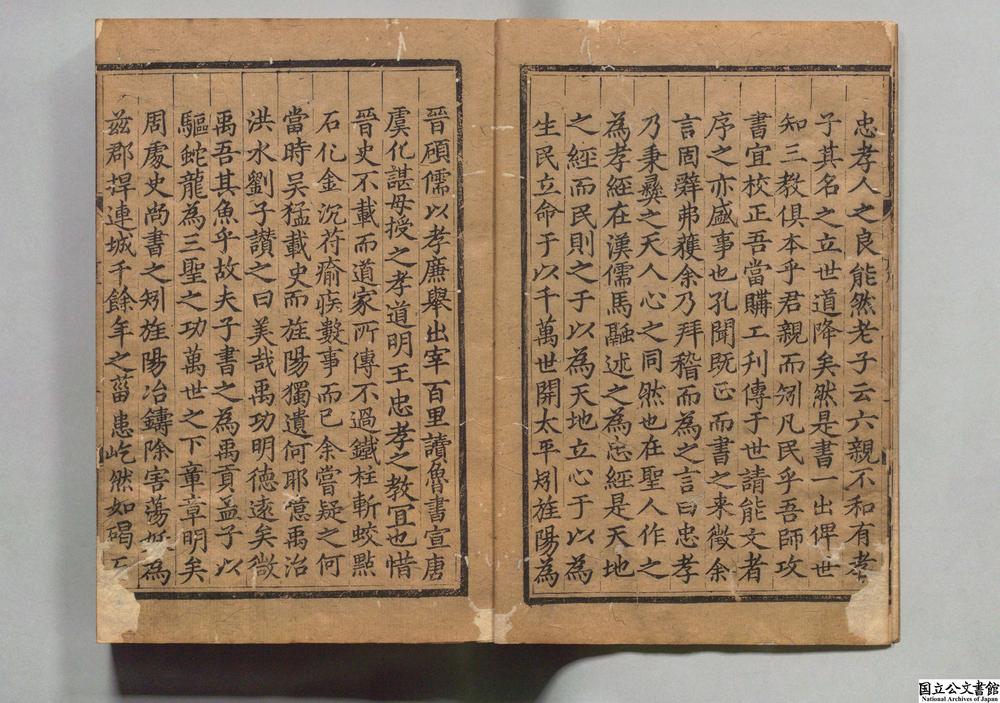 忠孝人之良能然老子云六親不和有孝
子其名之立世道降矣然是書一出俾世
知三教俱本乎君親而矧凡民乎吾師攻
書宜校正吾當購工刊傳于世請能文者
序之亦盛事也孔聞既正而書之来徵余
言固辭弗獲余乃拜稽而為之言曰忠孝
乃秉彝之天人心之同然也在聖人作之
為孝經在漢儒馬融述之為忠經是天地
之經而民則之于以為天地立心于以為
生民立命于以千萬世開太平矧旌陽為
晉碩儒以孝廉舉出宰百里讀魯書宣唐
虞化諶母授之孝道明王忠孝之教宜也惜
晉史不載而道家所傳不過鐵柱斬蛟點
石化金沉符瘉疾數事而已余嘗疑之何
當時吴猛載史而旌陽獨遺何耶憶禹治
洪水劉子讃之曰美哉禹功明德遠矣微
禹吾其魚乎故夫子書之為禹貢孟子以
驅蛇龍為三聖之功萬世之下章章明矣
周處史尚書之矧旌陽冶鑄除害蕩妖為
兹郡捍連城千餘年之菑患屹然如碣石
国立公文書館
National Archives of Japan